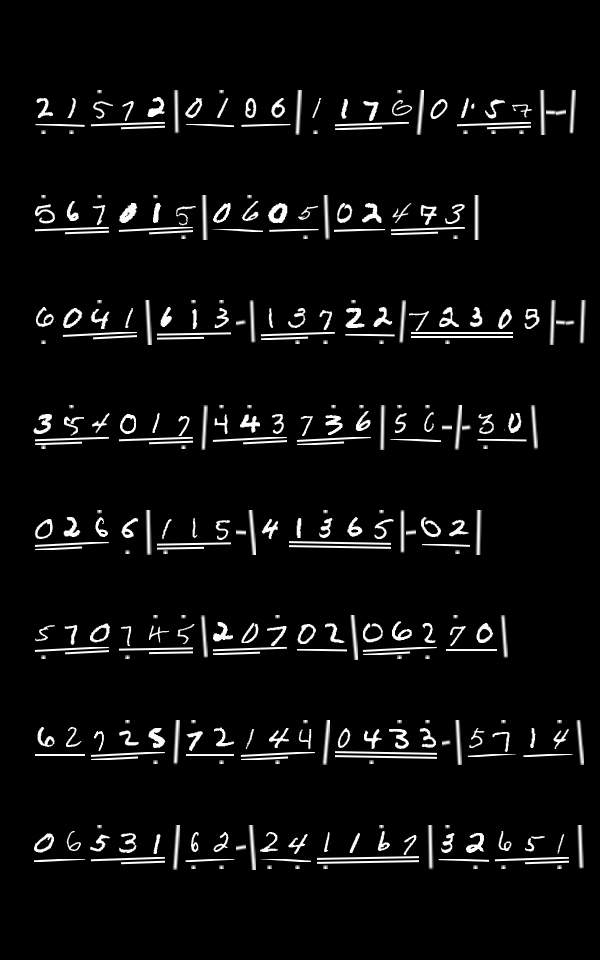 21572|0106|1176|01·57|--|
567015|0605|02473|
6041|613-|13722|72305|-|
354017|443736|56-|-30|
0266|115-|41365|-02|
570745|20702|06270|
62725|72144|0433-|5714|
06531|62-|241167|32651|